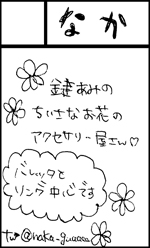 なか
鍵あみの
ちいさなお花の
アクセサリー屋さん♡
バレッタと
リング中心です
tw @naka_guaaaa